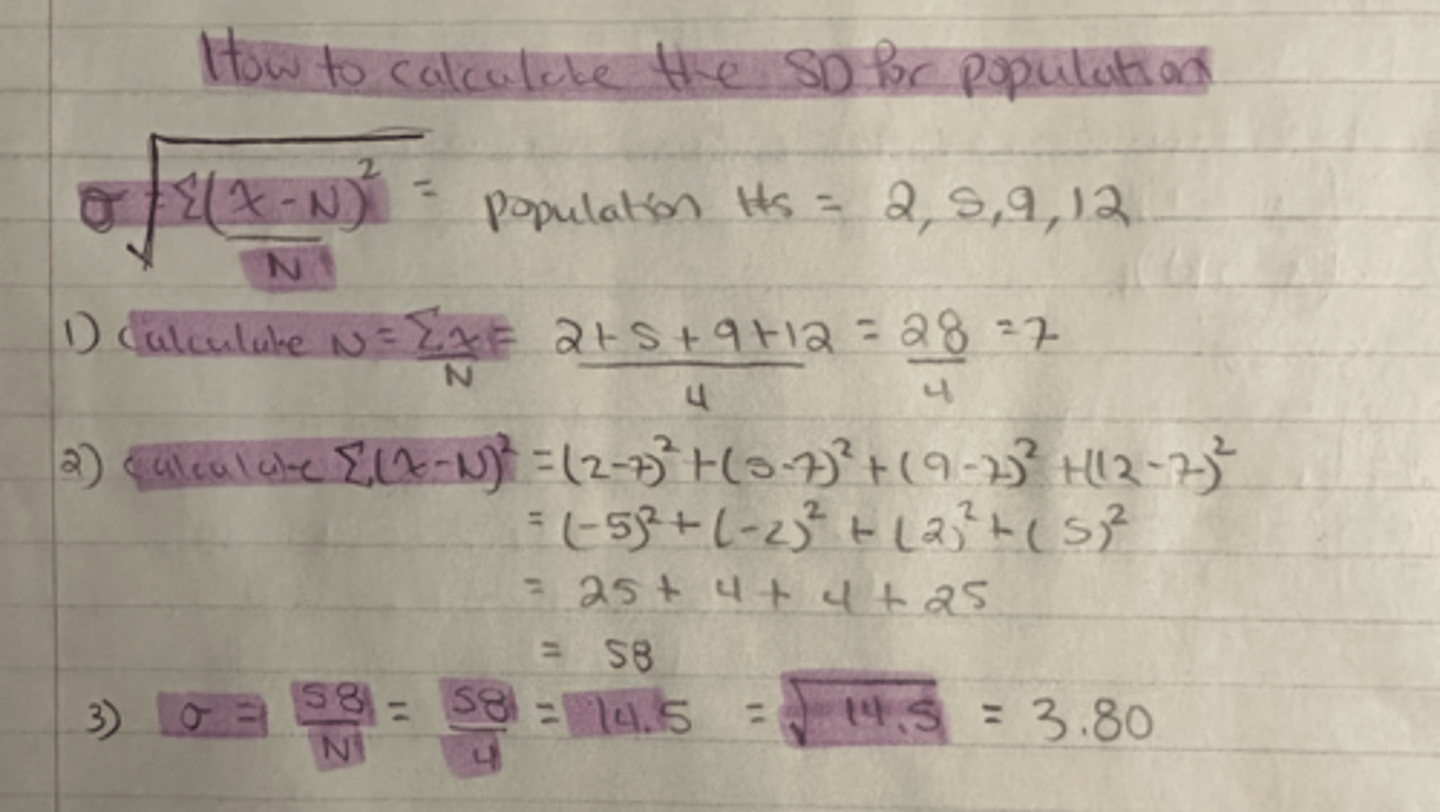 How to calculate the SD for population
σ = √ Σ(x - N)² / N = population #s = 2, 5, 9, 12
1) Calculate N = Σx / N = 2 + 5 + 9 + 12 / 4 = 28 / 4 = 7
2) Calculate Σ(x - N)² = (2-7)² + (5-7)² + (9-7)² + (12-7)²
= (-5)² + (-2)² + (2)² + (5)²
= 25 + 4 + 4 + 25
= 58
3) σ = 58 / N = 58 / 4 = 14.5 = √14.5 = 3.80